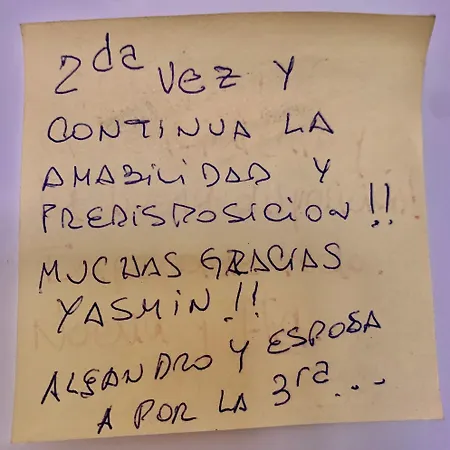 2da VEZ Y
CONTINUA LA
AMABILIDAD Y
PREDISPOSICION!!
MUCHAS GRACIAS
YASMIN!!
ALEJANDRO Y ESPOSA
A POR LA 3ra...